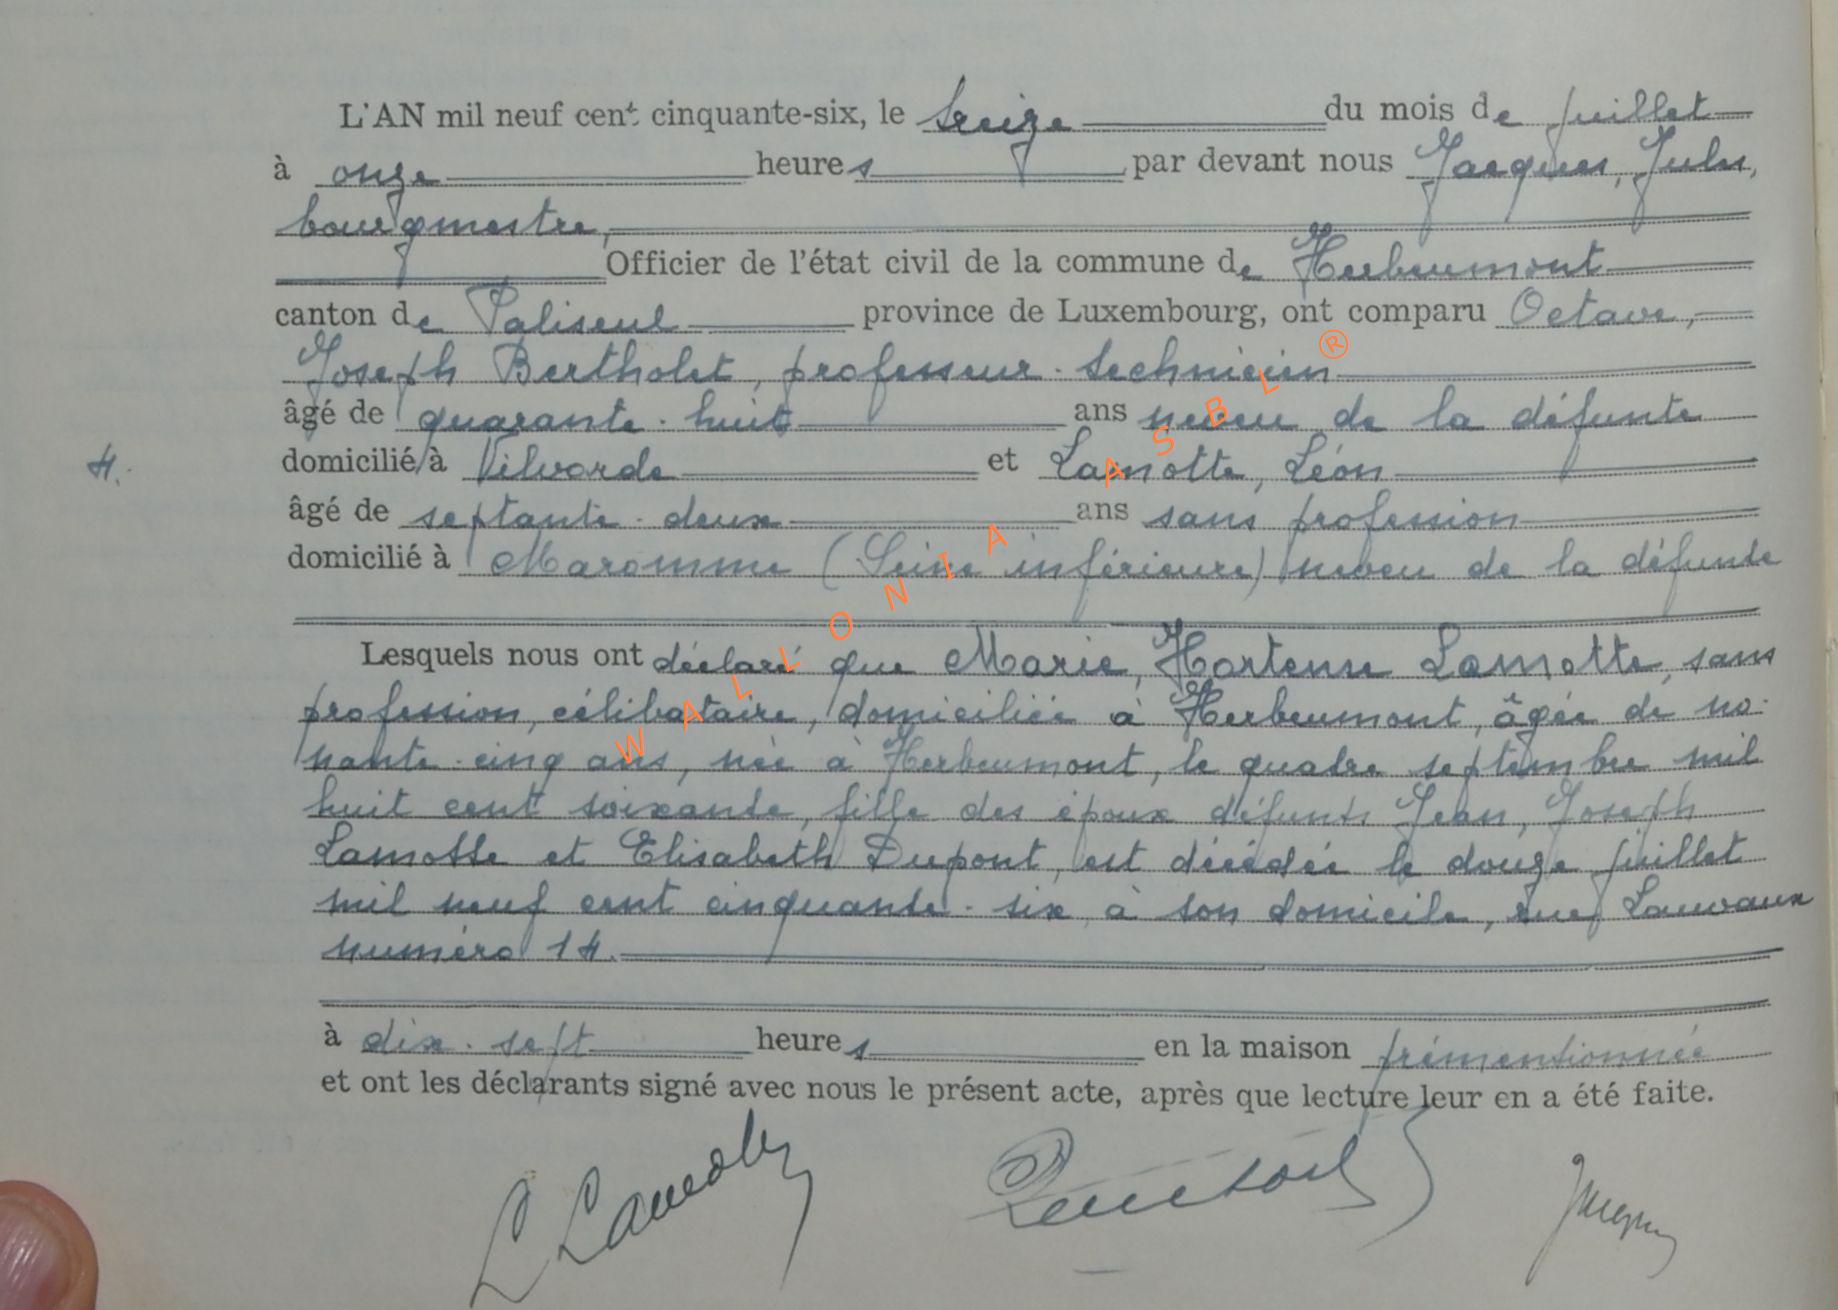 L'AN mil neuf cent cinquante-six, le seize du mois de juillet
à onze heures par devant nous Jacques, Jules,
bourgmestre,
Officier de l'état civil de la commune de Herbeumont
canton de Paliseul province de Luxembourg, ont comparu Octave,
Joseph Bertholet, professeur-technicien
âgé de quarante-huit ans neveu de la défunte
domicilié à Vilvorde et Lamotte, Léon
4.
âgé de septante-deux ans sans profession
domicilié à Maromme (Seine inférieure) neveu de la défunte
Lesquels nous ont déclaré que Marie, Hortense Lamotte, sans
profession, célibataire, domiciliée à Herbeumont, âgée de no-
nante-cinq ans, née à Herbeumont, le quatre septembre mil
huit cent soixante, fille des époux défunts Jean, Joseph
Lamotte et Elisabeth Dupont, est décédée le douze juillet
mil neuf cent cinquante-six, à son domicile, rue Lauvaux
numéro 14.
à dix-sept heures en la maison prémentionnée
et ont les déclarants signé avec nous le présent acte, après que lecture leur en a été faite.
L Lamotte Jacques
WALLONIA ASBL ®